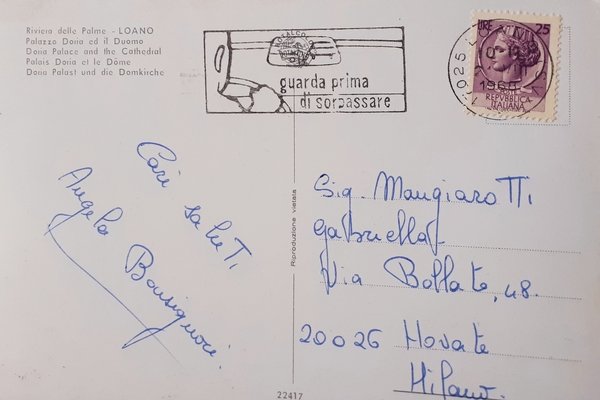 Riviera delle Palme - LOANO
Palazzo Doria ed il Duomo
Doria Palace and the Cathedral
Palais Doria et le Dôme
Doria Palast und die Domkirche
guarda prima
di sorpassare
LIRE 25
REPVBBLICA
ITALIANA
1968
Cari saluti
Angela Bonsignori.
Riproduzione vietata
Sig. Mangiarotti
Gabriella
Via Bollate, 48.
20026 Novate
Milano.
22417